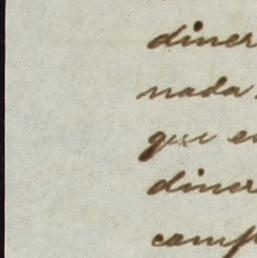 diner
nada
que e
diner
camp